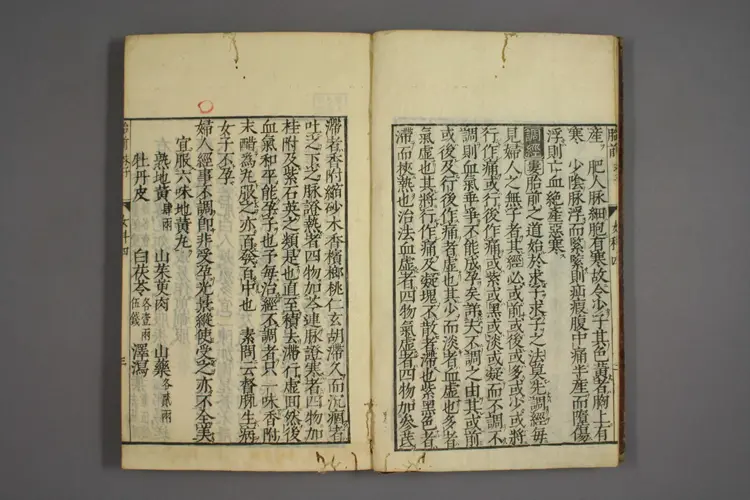 產。肥人脉細胞有寒故令少子其色黃者胸上有
寒　少陰脉浮而緊緊則疝瘕腹中痛半產而墮傷
浮則亡血絕產惡寒
調經　妻胎前之道始於求子求子之法莫先調經每
見婦人之無子者其經必或前或後或多或少或將
行作痛或行後作痛或紫或黑或淡或凝而不調不
調則血氣乖爭不能成孕矣詳夫不調之由其或前
或後及行後作痛者虛也其少而淡者血虛也多者
氣虛也其將行作痛及凝塊不散者滯也紫黑色者
滯而挾熱也治法血虛者四物氣虛者四物加參芪
滯者香附縮砂木香檳榔桃仁玄胡滯久而沉痼者
吐之下之脉證熱者四物加芩連脉證寒者四物加
桂附及紫石英之類是也直至積去滯行虛回然後
血氣和平能孕子也予每治經不調者只一味香附
末醋為丸服之亦百發百中也　素問云督脉生病
女子不孕
婦人經事不調即非受孕光景縱使受之亦不全美
宜服六味地黃丸
熟地黃肆兩　山茱萸肉　山藥各貳兩
牡丹皮　白茯苓各壹兩伍錢　澤瀉
胎前
女科四
三